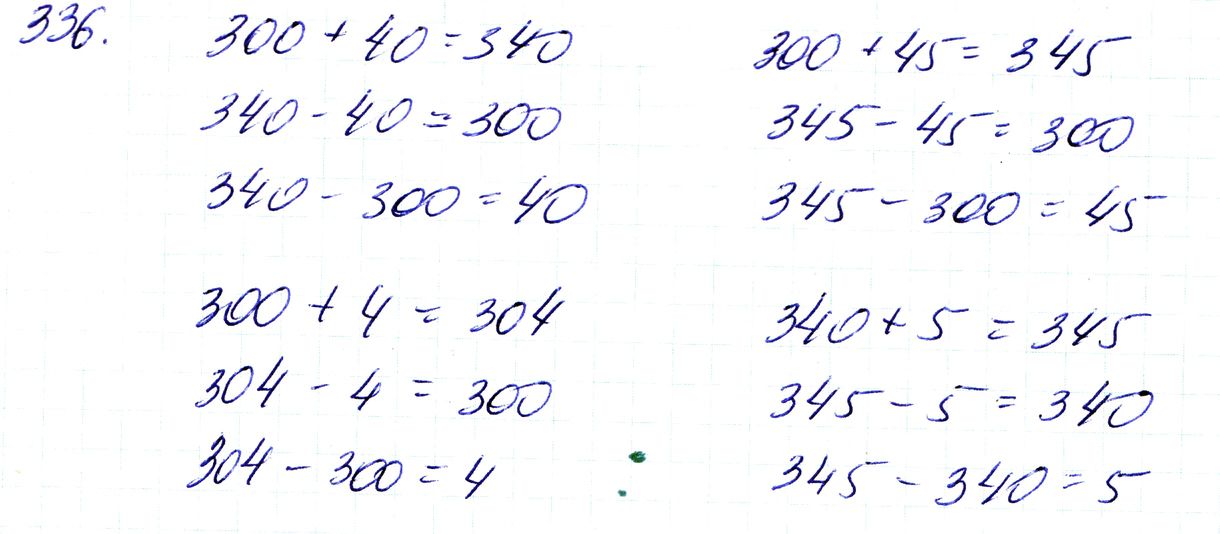 336.
300 + 40 = 340
340 - 40 = 300
340 - 300 = 40
300 + 45 = 345
345 - 45 = 300
345 - 300 = 45
300 + 4 = 304
304 - 4 = 300
304 - 300 = 4
340 + 5 = 345
345 - 5 = 340
345 - 340 = 5